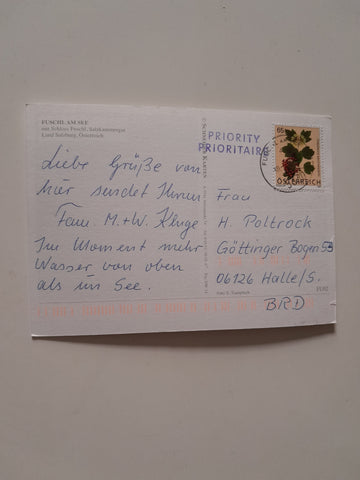 FUSCHL AM SEE
mit Schloss Fuschl, Salzkammergut
Land Salzburg, Österreich
Liebe Grüße von
hier sendet Ihnen
Fam. M.+W. Kluge
Im Moment mehr
Wasser von oben
als im See.
PRIORITY
PRIORITAIRE
65
ÖSTERREICH
Frau
H. Poltrock
Göttinger Bogen 53
06126 Halle/S.
BRD